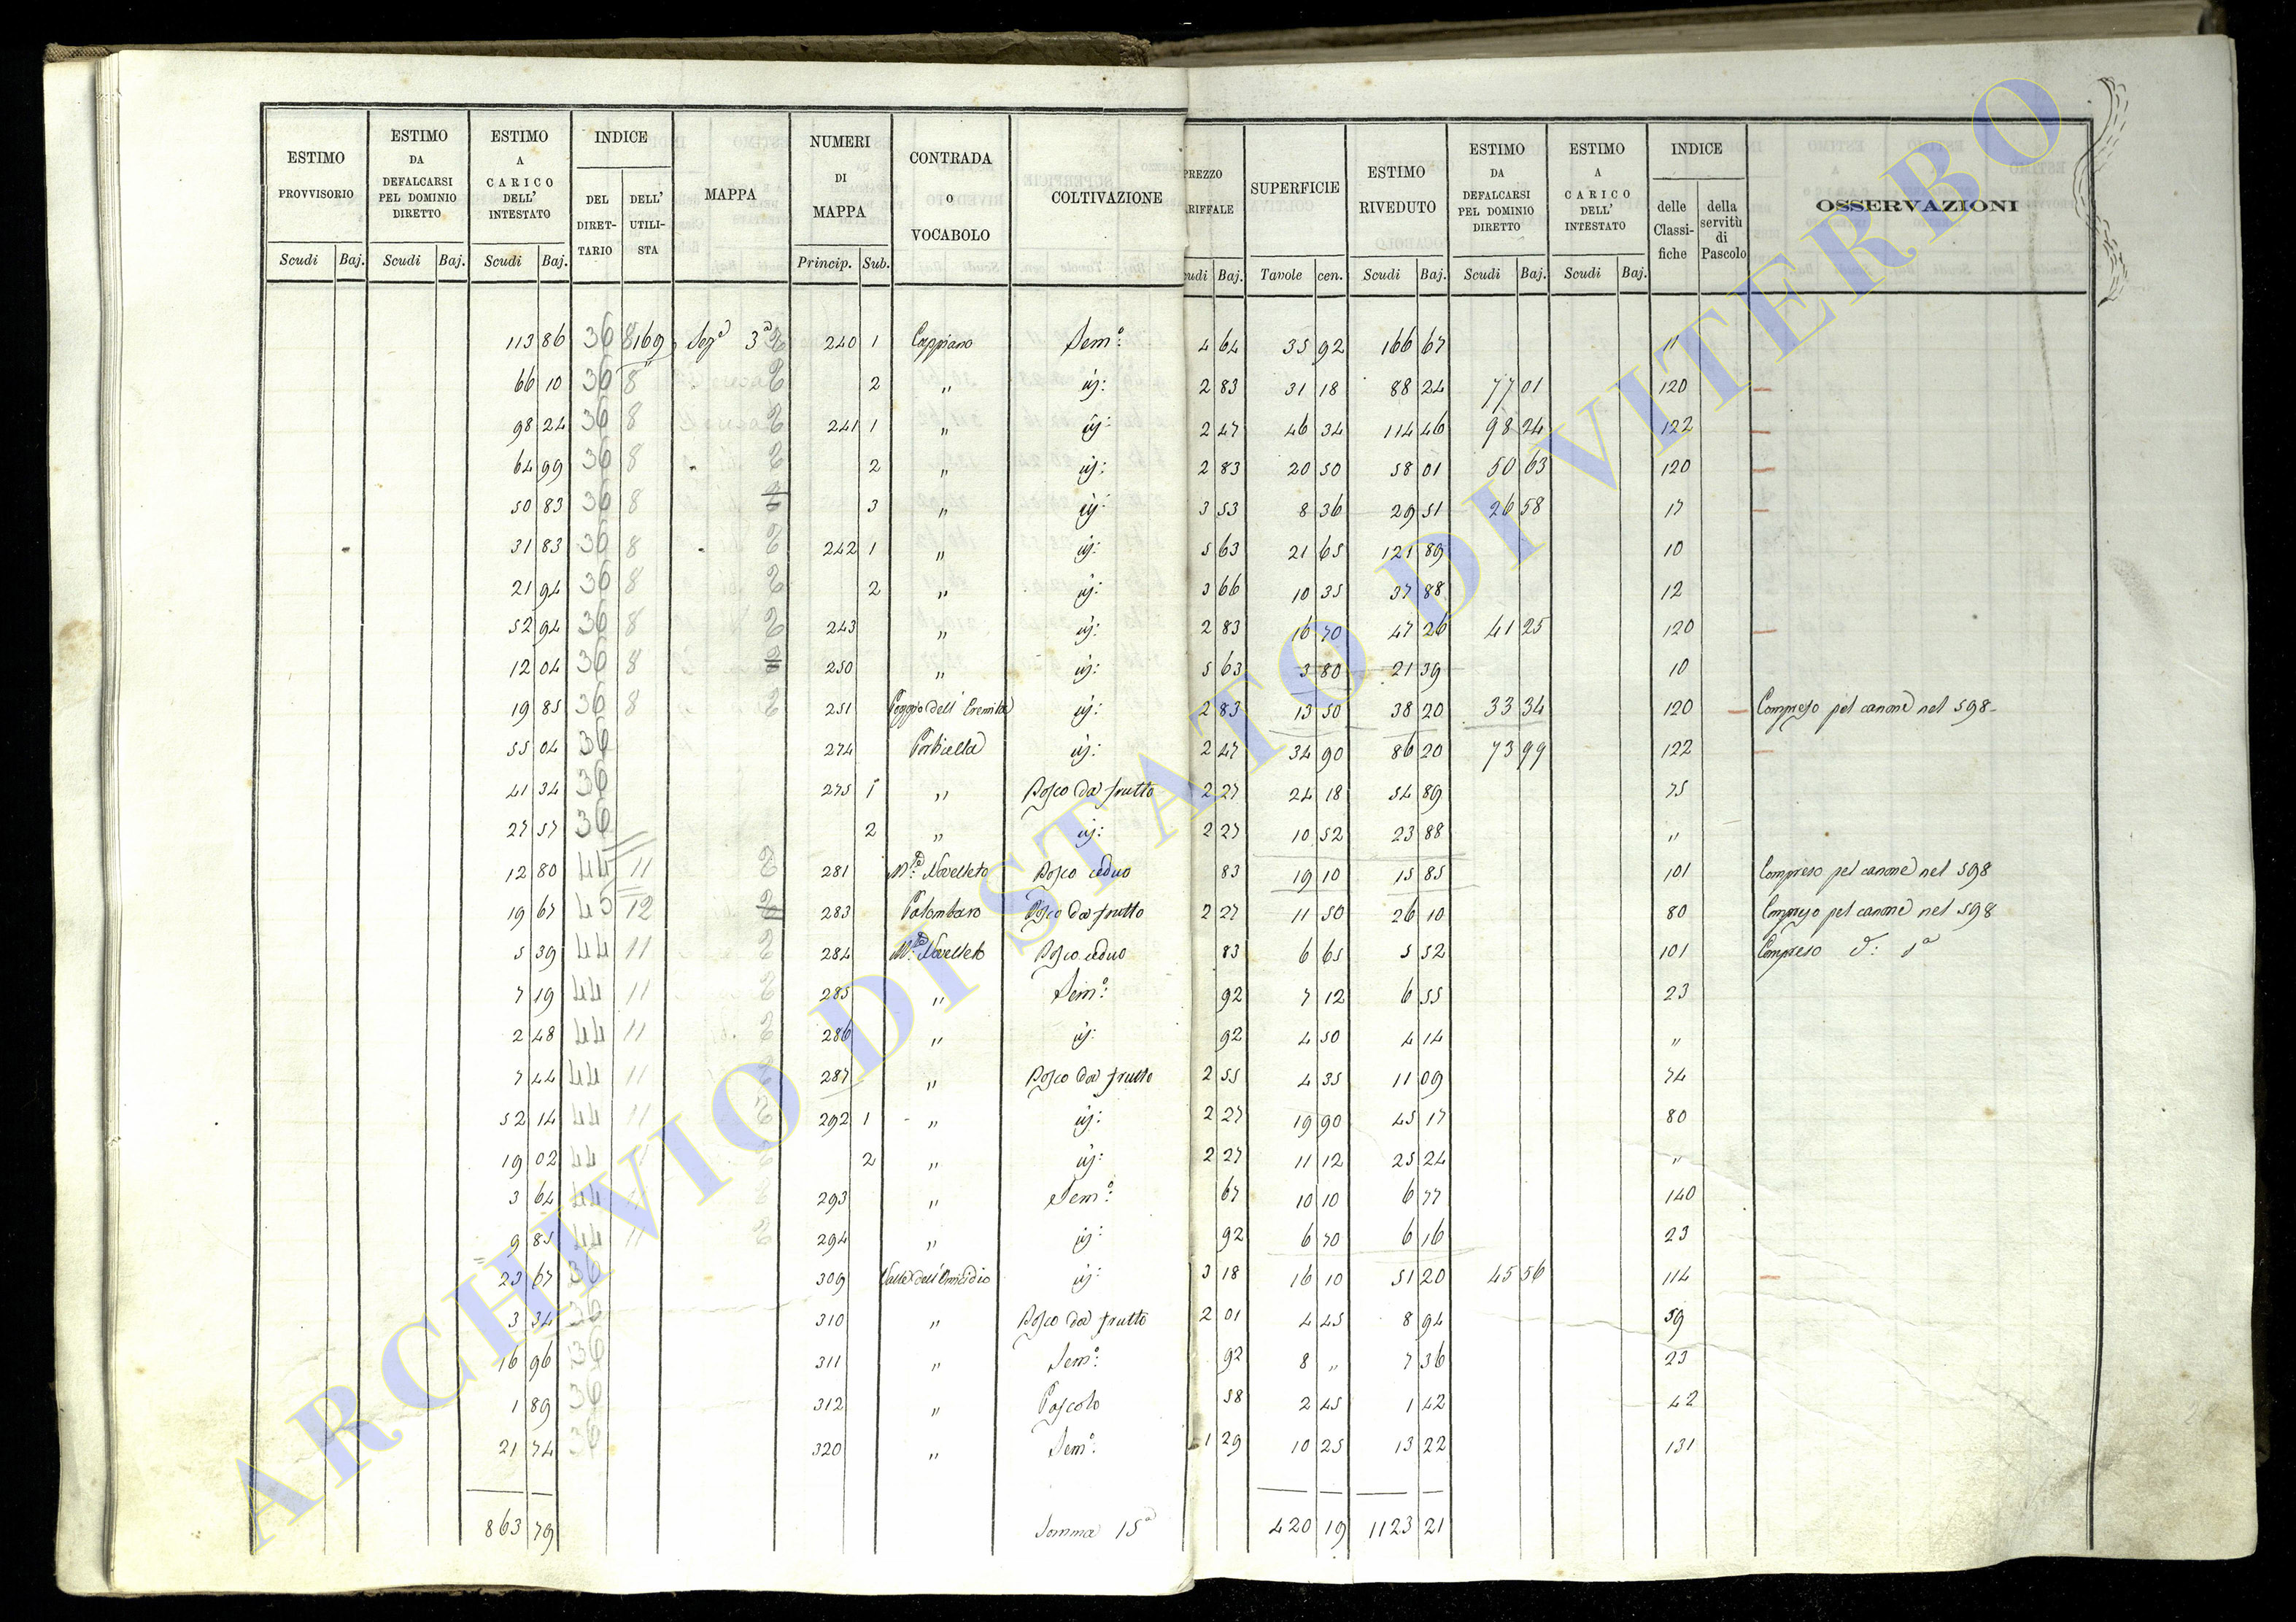 ESTIMO PROVVISORIO | ESTIMO DA DEFALCARSI PEL DOMINIO DIRETTO | ESTIMO A CARICO DELL' INTESTATO | INDICE | MAPPA | NUMERI DI MAPPA | CONTRADA O VOCABOLO | COLTIVAZIONE | PREZZO | SUPERFICIE | ESTIMO RIVEDUTO | ESTIMO DA DEFALCARSI PEL DOMINIO DIRETTO | ESTIMO A CARICO DELL' INTESTATO | INDICE | OSSERVAZIONI
DEL DIRETTARIO | DELL' UTILISTA | RIFFALE | delle Classifiche | della servitù di Pascolo
Scudi | Baj. | Scudi | Baj. | Scudi | Baj. | Princip. | Sub. | udi | Baj. | Tavole | cen. | Scudi | Baj. | Scudi | Baj. | Scudi | Baj.
113 86 | 36 | 8169 | Sez.a 3a 2 | 240 | 1 | Cappiano | Sem.o | 4 64 | 35 92 | 166 67 | 11
66 10 | 36 | 8 | 2 | 2 | " | id: | 2 83 | 31 18 | 88 24 | 77 01 | 120
98 24 | 36 | 8 | 2 | 241 | 1 | " | id: | 2 47 | 46 34 | 114 46 | 98 24 | 122
64 99 | 36 | 8 | 2 | 2 | " | id: | 2 83 | 20 50 | 58 01 | 50 63 | 120
50 83 | 36 | 8 | 3 | " | id: | 3 53 | 8 36 | 29 51 | 26 58 | 17
31 83 | 36 | 8 | 2 | 242 | 1 | " | id: | 5 63 | 21 65 | 121 89 | 10
21 94 | 36 | 8 | 2 | 2 | " | id: | 3 66 | 10 35 | 37 88 | 12
52 94 | 36 | 8 | 2 | 243 | " | id: | 2 83 | 16 70 | 47 26 | 41 25 | 120
12 04 | 36 | 8 | 250 | " | id: | 5 63 | 3 80 | 21 39 | 10
19 85 | 36 | 8 | 2 | 251 | Poggio dell' Eremita | id: | 2 83 | 13 50 | 38 20 | 33 34 | 120 | Compreso pel canone nel 598
55 04 | 36 | 274 | id: | 2 47 | 34 90 | 86 20 | 73 99 | 122
41 34 | 36 | 275 | 1 | " | Bosco da frutto | 2 27 | 24 18 | 54 89 | 75
27 57 | 36 | 2 | " | id: | 2 27 | 10 52 | 23 88 | "
12 80 | 44 | 11 | 2 | 281 | M.te Novelleto | Bosco ceduo | 83 | 19 10 | 15 85 | 101 | Compreso pel canone nel 598
19 67 | 45 | 12 | 2 | 283 | Palombaro | Bosco da frutto | 2 27 | 11 50 | 26 10 | 80 | Compreso pel canone nel 598
5 39 | 44 | 11 | 2 | 284 | M.te Novelleto | Bosco ceduo | 83 | 6 65 | 5 52 | 101 | Compreso
7 19 | 44 | 11 | 2 | 285 | " | Sem.o | 92 | 7 12 | 6 55 | 23
2 48 | 44 | 11 | 2 | 286 | " | id: | 92 | 4 50 | 4 14 | "
7 44 | 44 | 11 | 2 | 287 | " | Bosco da frutto | 2 55 | 4 35 | 11 09 | 74
52 14 | 44 | 11 | 2 | 292 | 1 | " | id: | 2 27 | 19 90 | 45 17 | 80
19 02 | 44 | 11 | 2 | 2 | " | id: | 2 27 | 11 12 | 25 24 | "
3 64 | 44 | 11 | 2 | 293 | " | Sem.o | 67 | 10 10 | 6 77 | 140
9 85 | 44 | 11 | 2 | 294 | " | id: | 92 | 6 70 | 6 16 | 23
23 67 | 36 | 309 | Valle dell'Omicidio | id: | 3 18 | 16 10 | 51 20 | 45 56 | 114
3 34 | 36 | 310 | " | Bosco da frutto | 2 01 | 4 45 | 8 94 | 59
16 96 | 36 | 311 | " | Sem.o | 92 | 8 " | 7 36 | 23
1 89 | 36 | 312 | " | Pascolo | 58 | 2 45 | 1 42 | 42
21 74 | 36 | 320 | " | Sem.o | 1 29 | 10 25 | 13 22 | 131
863 79 | Somma 15a | 420 19 | 1123 21
ARCHIVIO DI STATO DI VITERBO